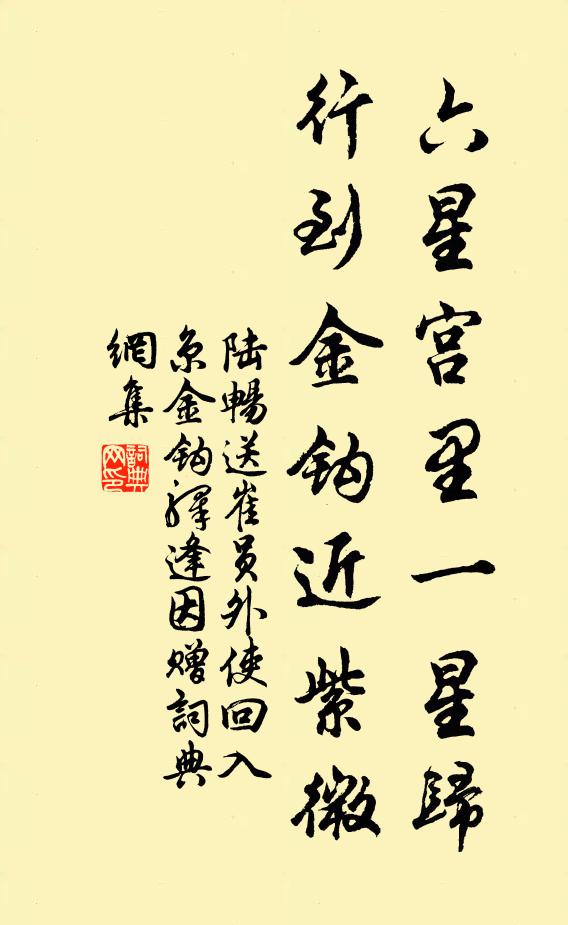 六星宫里一星歸
行到金鈎近紫微
陸暢送崔員外使回入
京金鈎驛逢因贈詞典
網集
詞典
网印